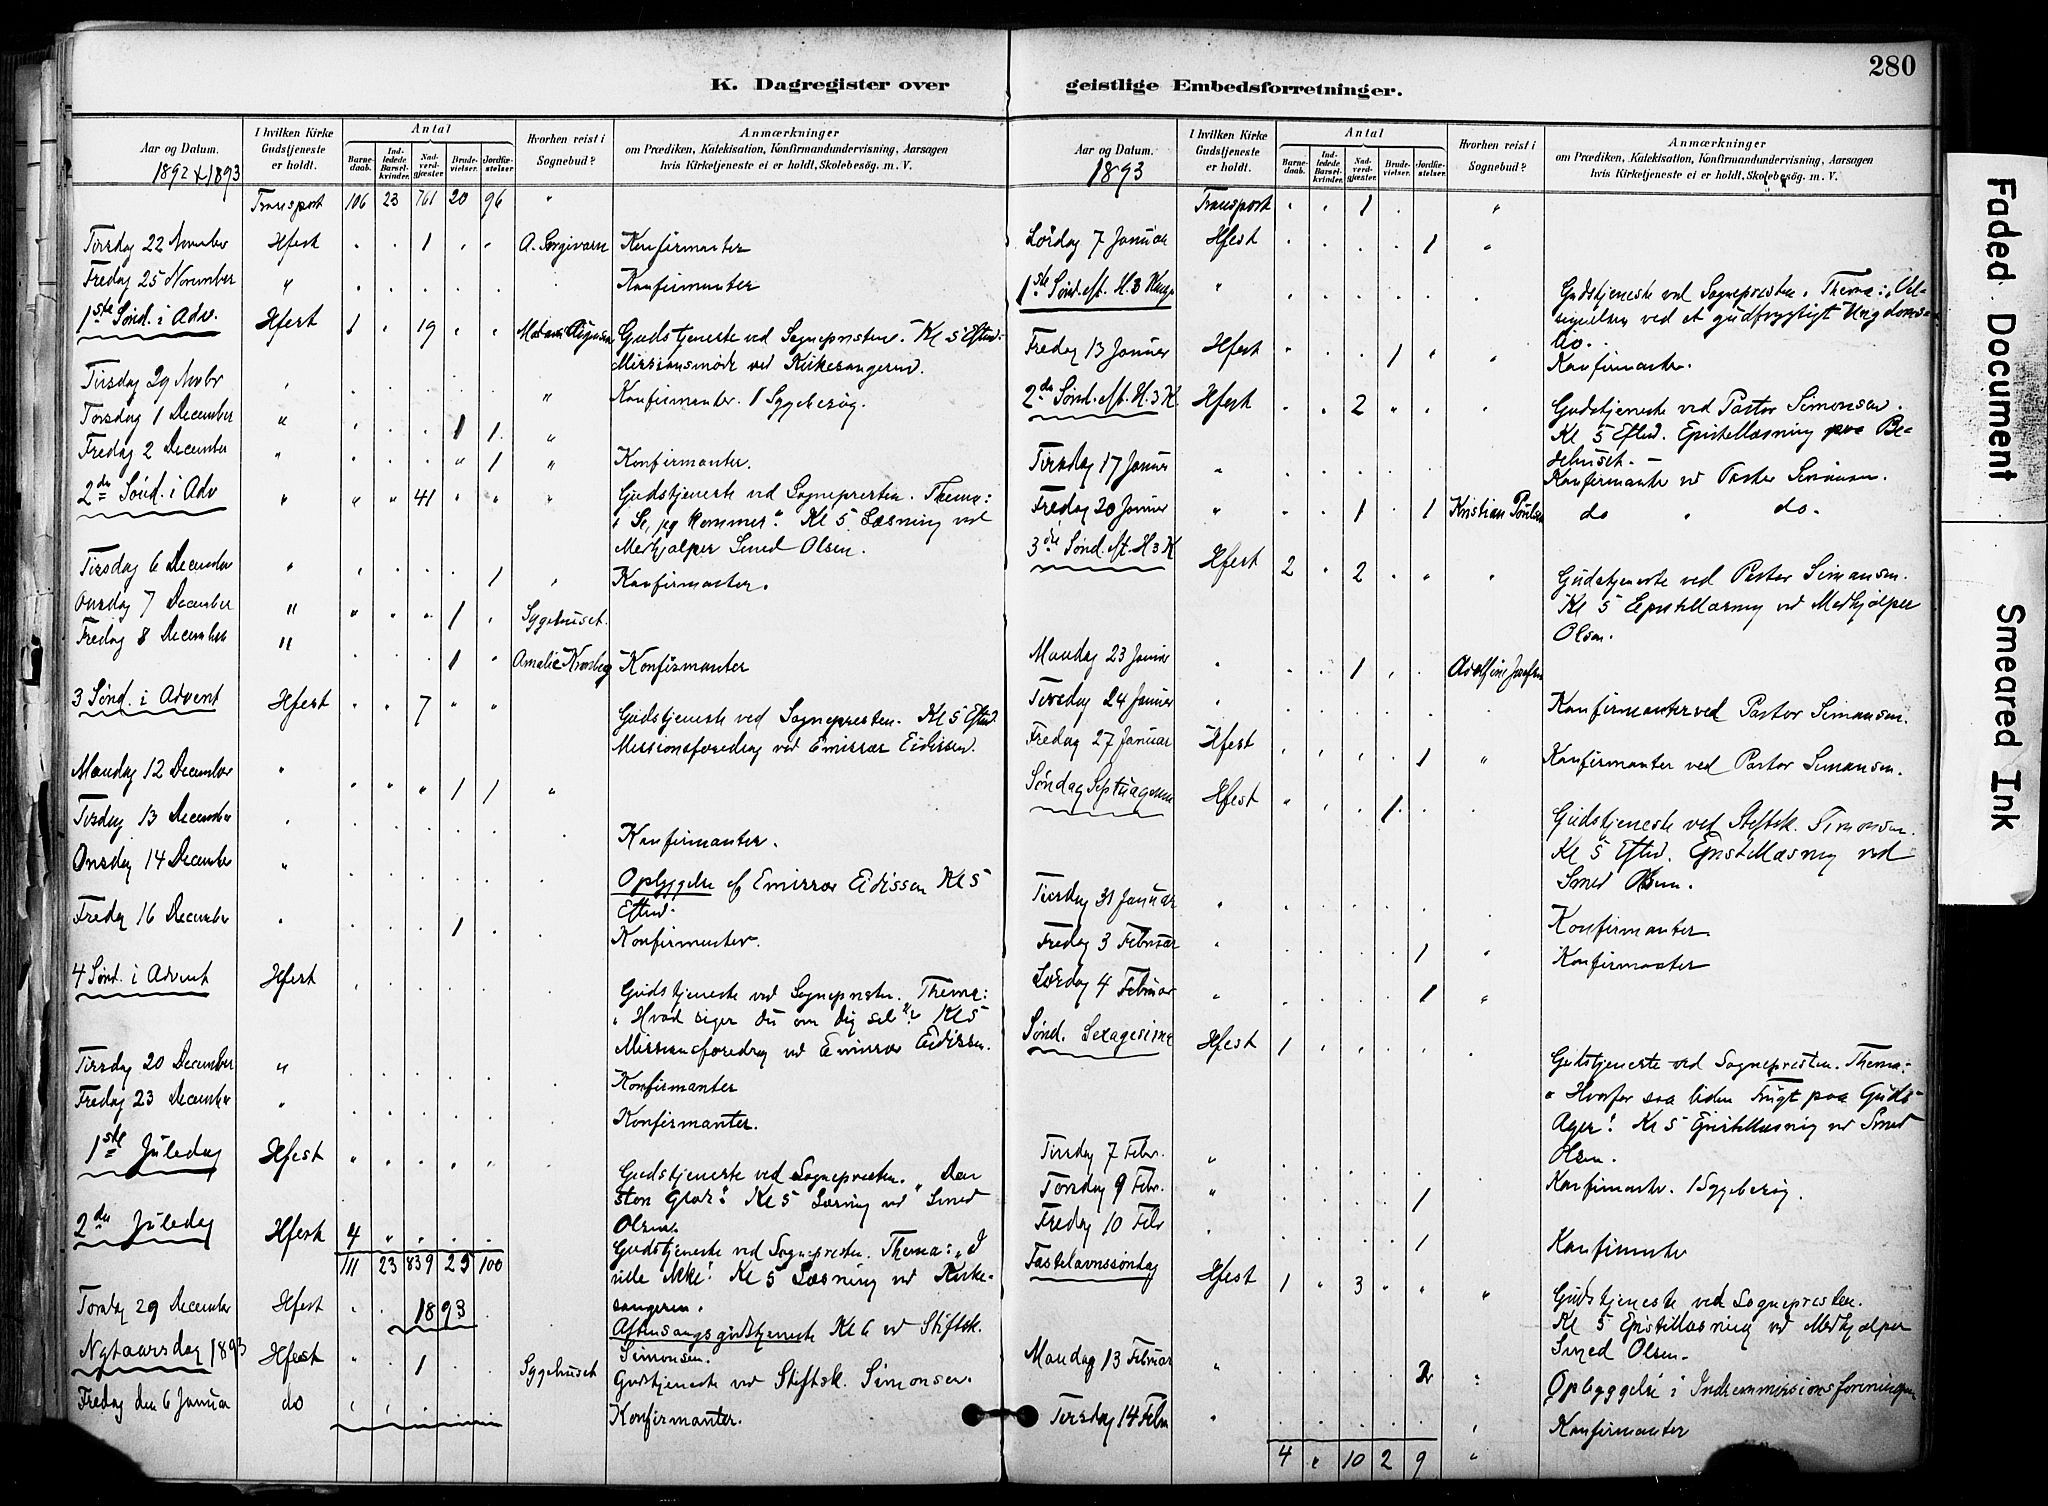 280
K. Dagregister over geistlige Embedsforretninger.
Aar og Datum.
1892 & 1893
I hvilken Kirke Gudstjeneste er holdt.
Antal
Barne-daab. Ind-ledede Barsel-kvinder. Nad-verd-gjester Brude-vielser. Jordfæ-stelser.
Hvorhen reist i Sognebud?
Anmærkninger
om Prædiken, Katekisation, Konfirmandundervisning, Aarsagen
hvis Kirketjeneste ei er holdt, Skolebesøg. m. V.
Transport 106 23 761 20 96 "
Tirsdag 22 November Hfest . . 1 . . Konfirmanter
Fredag 25 November " Konfirmanter
1ste Sønd. i Adv. Hfest 1 " 19 " " Gudstjeneste ved Sognepresten. Kl 5 Efterm:
Missionsmøde ved Kirkesangeren.
Tirsdag 29 Novbr " Konfirmanter. 1 Sygebesøg.
Torsdag 1 December " . . . 1 1 "
Fredag 2 December " . . . " 1 " Konfirmanter.
2den Sønd. i Adv " " " 41 " " " Gudstjeneste ved Sognepresten. Thema:
"Se, jeg kommer". Kl 5 Læsning ved
Medhjælper Smed Olsen.
Tirsdag 6 December " . . . . 1 " Konfirmanter.
Onsdag 7 December " " " " 1 . Sygehuset.
Fredag 8 December " . . . 1 " Amalie Konfirmanter
3 Sønd. i Advent Hfest " " 7 " " Gudstjeneste ved Sognepresten. Kl 5 Efterm.
Missionsforedrag ved Emissær Eidissen.
Mandag 12 December " " " " 1 1 "
Tirsdag 13 December . Konfirmanter.
Onsdag 14 December " Opbyggelse af Emissær Eidissen Kl 5
Efterm.
Fredag 16 December . . . . 1 . Konfirmanter.
4 Sønd. i Advent Hfest Gudstjeneste ved Sognepresten. Thema:
"Hvad siger du om dig selv"? Kl 5
Missionsforedrag ved Emissær Eidissen.
Tirsdag 20 December " Konfirmanter
Fredag 23 December " Konfirmanter.
1ste Juledag Hfest " . . . . Gudstjeneste ved Sognepresten. "Den
Kl 5 Læsning ved Smed
Olsen.
2den Juledag Hfest 4 " . . . Gudstjeneste ved Sognepresten. Thema: "I
ville ikke! Kl 5 Læsning ved Kirke-
sangeren.
111 23 839 25 100
Torsdag 29 December Hfest 1893 Aftensangsgudstjeneste Kl 6 ved Stiftsk.
Simonsen.
Nytaarsdag 1893 Hfest " . 1 . . Sygehuset Gudstjeneste ved Stiftsk. Simonsen.
Fredag den 6 Januar do Konfirmanter.
Aar og Datum.
1893
I hvilken Kirke Gudstjeneste er holdt.
Antal
Barne-daab. Ind-ledede Barsel-kvinder. Nad-verd-gjester Brude-vielser. Jordfæ-stelser.
Hvorhen reist i Sognebud?
Anmærkninger
om Prædiken, Katekisation, Konfirmandundervisning, Aarsagen
hvis Kirketjeneste ei er holdt, Skolebesøg. m. V.
Transport " " 1 . "
Lørdag 7 Januar Hfest . . . . 1 "
1ste Sønd. eft. H. 3 Konge " Gudstjeneste ved Sognepresten. Thema: "Vel-
signelsen ved et gudfrygtigt Ungdoms-
liv.
Fredag 13 Januar Hfest " . . 1 " " Konfirmanter.
2den Sønd. eft. H. 3 K. Hfest . " 2 " . . Gudstjeneste ved Pastor Simonsen.
Kl 5 Efterm. Epistellæsning paa Be-
dehuset.
Tirsdag 17 Januar " Konfirmanter ved Pastor Simonsen.
Fredag 20 Januar " . . 1 . 1 Kristian Poulsen do " do.
3die Sønd. eft. H 3 K Hfest 2 . 2 . " " Gudstjeneste ved Pastor Simonsen.
Kl 5 Epistellæsning ved Medhjælper
Olsen.
Mandag 23 Januar " . . 1 . . Adolfine Josefsen
Tirsdag 24 Januar . Konfirmanter ved Pastor Simonsen.
Fredag 27 Januar Hfest . . . . 1 " Konfirmanter ved Pastor Simonsen.
Søndag Septuagesima Hfest " . . 1 . Gudstjeneste ved Stiftsk. Simonsen.
Kl 5 Efterm. Epistellæsning ved
Smed Olsen.
Tirsdag 31 Januar " Konfirmanter.
Fredag 3 Februar " . . . . 1 " Konfirmanter
Lørdag 4 Februar " . . . . 1 "
Sønd. Sexagesima Hfest 1 . . . . Gudstjeneste ved Sognepresten. Thema:
"Hvorfor saa liden Frugt paa Guds
Ager! Kl 5 Epistellæsning ved Smed
Olsen.
Tirsdag 7 Febr. " Konfirmanter. 1 Sygebesøg.
Torsdag 9 Febr. " . . . . 1
Fredag 10 Febr . . . . . 1 Konfirmanter
Fastelavnssøndag Hfest 1 " 3 . . " Gudstjeneste ved Sognepresten.
Kl 5 Epistellæsning ved Medhjælper
Smed Olsen.
Mandag 13 Februar " . . . . 2 " Opbyggelse i Indremissionsforeningen
Tirsdag 14 Febr " Konfirmanter
4 " 10 2 9 "
Faded Document
Smeared Ink